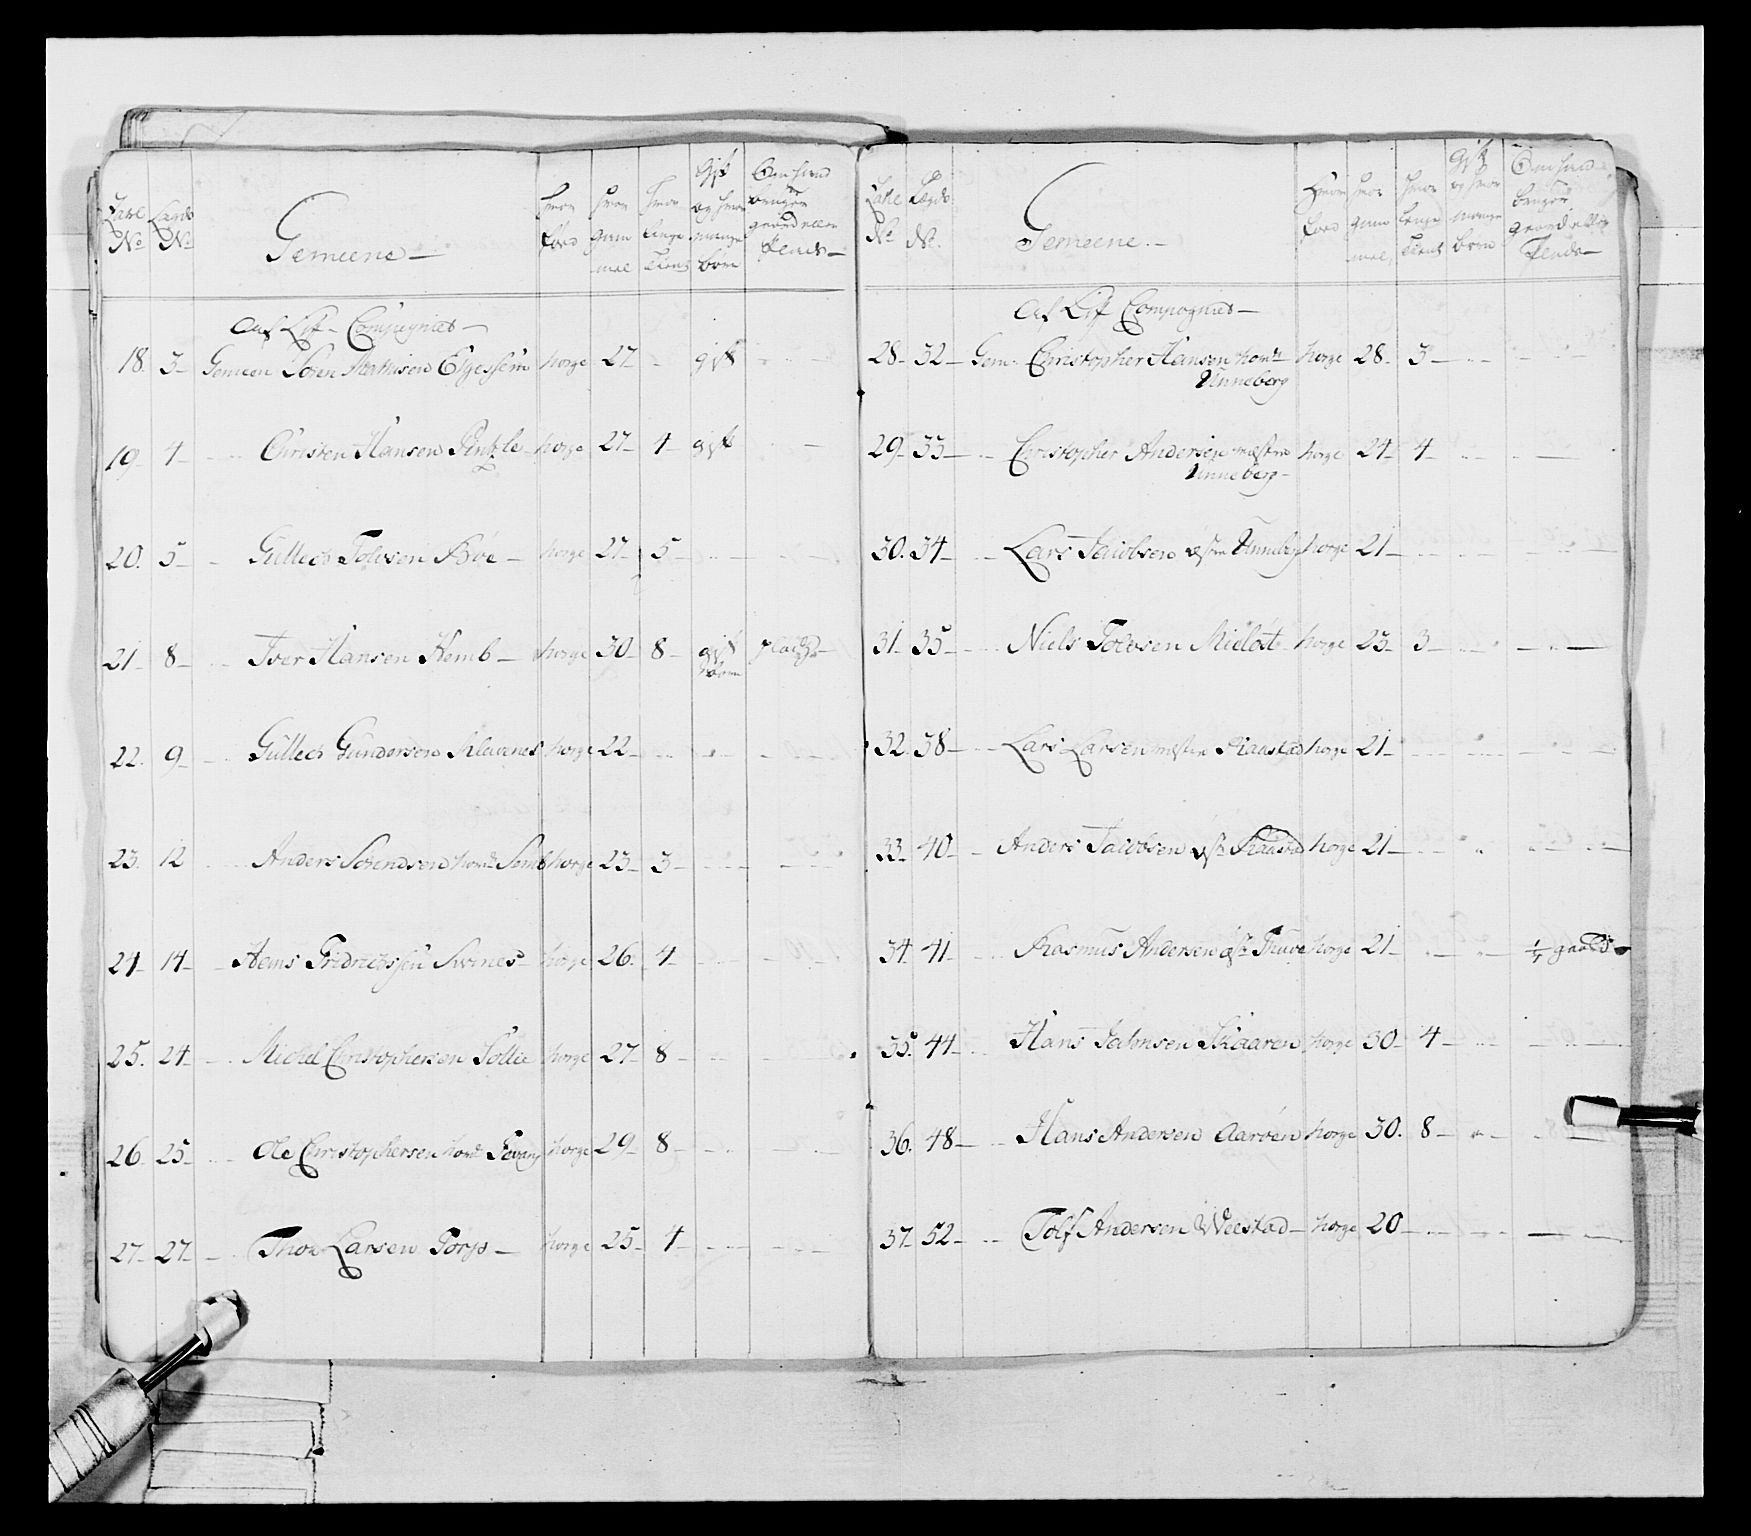 No
Lægds
No
Gemeene —
hvor
fød
hvor
gam
mel
hvor
lenge
tient
gift
og hvor
mange
børn
Om hand
bruger
gaard eller
Plads —
Af Lif - Compagniet —
18. 3 — Gemeen Søren Mathisen Elgessem norge 27 — gift
19 — 4 — Christen Hansen norge 27 — 4 — gift
20. 5 — Gullech Tolvsen Bøe — norge 27 — 5 —
21 — 8 — Iver Hansen Hemb — norge 30 — 8 — gift plads —
børn
22. 9 — Gullech Gundersen Klavenes norge 22 —
23. 12 Anders Sørendsen Semb norge 23 — 3 —
24 — 14 — Hans Fridrichsen norge 26. 4 —
25. 24 — Michel Christophersen Sollie norge 27 — 8 —
26. 25 — Ole Christophersen norge 29 — 8 —
27 — 27 — Thor Larsen Torp — norge 25 — 4 —
Lægds
No
No.
Gemeene. —
hvor
fød
hvor
gam
mel,
hvor
lenge
tient
gift
og hvor
mange
børn
Om hand
bruger
gaard eller
Plads —
Af Lif Compagniet —
28 — 32 — Gem. Christopher Hansen norge 28. 3 —
Unneberg
29 — 33 — Christopher Andersen norge 24 — 4 —
Unneberg —
30. 34 — Lars Jacobsen østre Unneberg norge 21 —
31 — 35 — Niels Tolvsen norge 23 — 3 —
32. 38 — Lars Larsen norge 21 —
33 — 40 — Anders Jacobsen norge 21 —
34 41 — Rasmus Andersen norge 21 — gaard
35. 44 — Hans Skaaren norge 30 — 4 —
36. 48 — Hans Andersen Aarøen norge 30. 8 —
37 — 52 — Tolf Andersen Weestad — norge 20 —